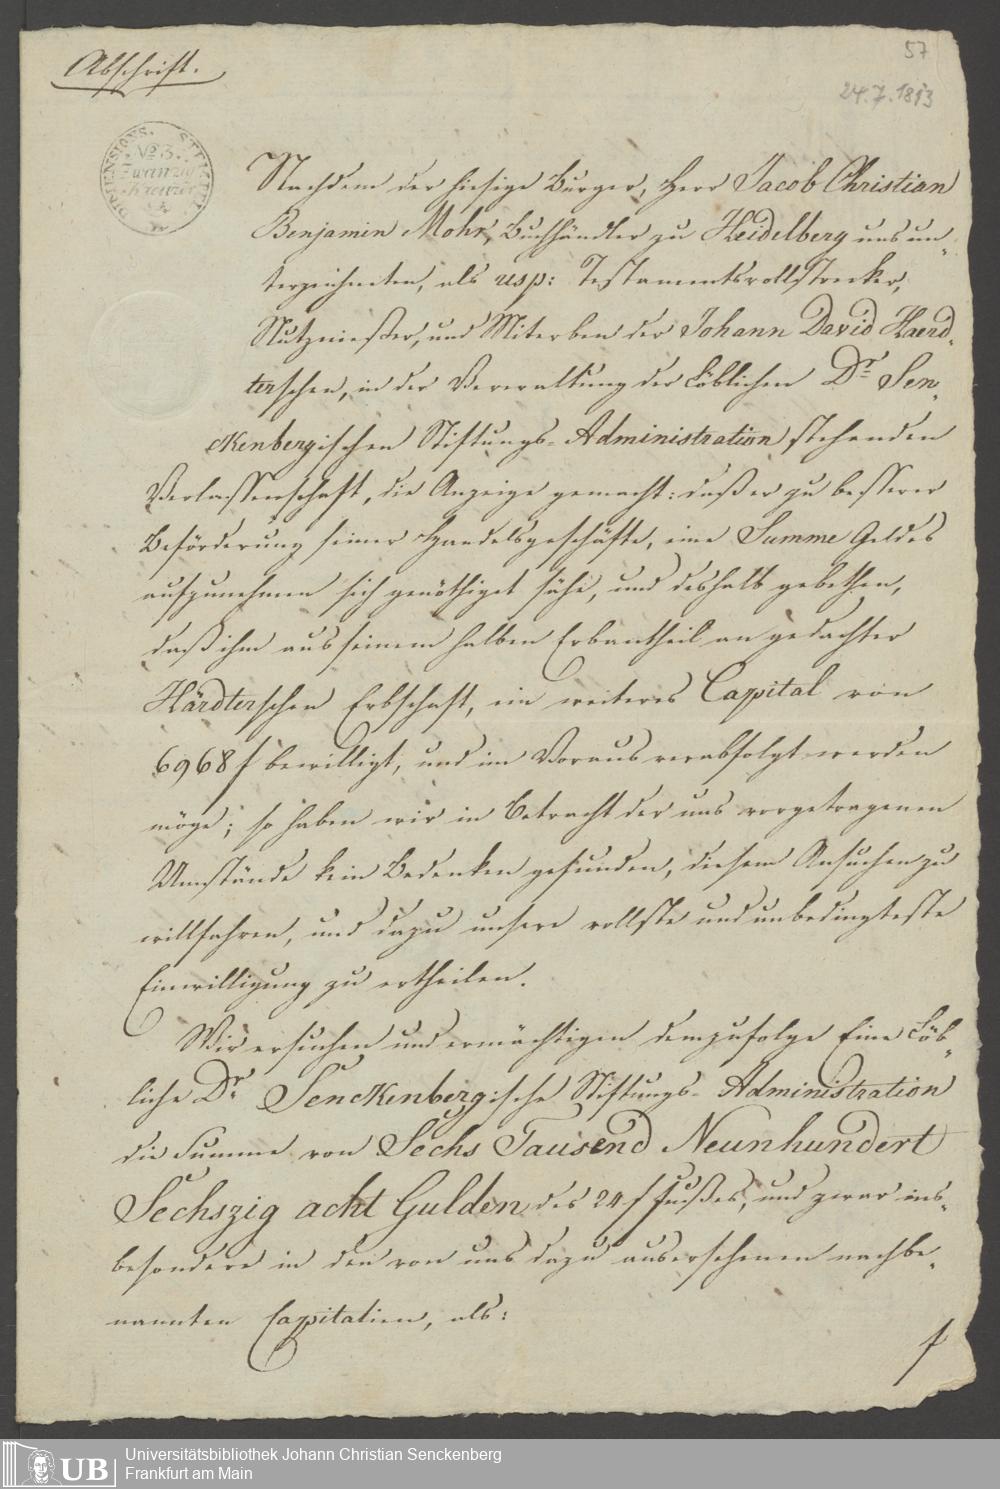 57
Abschrift.
24.7.1813
DIMENSIONS. STEMPEL.
No 3.
Zwanzig
Kreuzer
Nachdem der hiesige Burger, Herr Jacob Christian
Benjamin Mohr, Buchhändler zu Heidelberg uns un-
terzeichneten, als resp: Testamentsvollstrecker,
Nutznießer, und Miterben der Johann David Haerd-
terschen, in der Verwaltung der Löblichen Dr. Sen-
ckenbergischen Stiftungs-Administration stehenden
Verlassenschaft, die Anzeige gemacht: daß er zu besserer
Beförderung seiner Handelsgeschäfte, eine Summe Geldes
aufzunehmen sich genöthiget sähe, und deshalb gebethen,
daß ihm aus seinem halben Erbantheil an gedachter
Härdterschen Erbschaft, ein weiteres Capital von
6968 f bewilligt, und im Voraus verabfolgt werden
möge; so haben wir in Betracht der uns vorgetragenen
Umstände kein Bedenken gefunden, diesem Ansuchen zu
willfahren, und dazu unsere vollste und unbedingteste
Einwilligung zu ertheilen.
Wir ersuchen und ermächtigen demzufolge Eine Löb-
liche Dr. Senckenbergische Stiftungs-Administration
die Summe von Sechs Tausend Neunhundert
Sechszig acht Gulden des 24 f Fußes, und zwar ins-
besondere in den von uns dazu ausersehenen nachbe-
nannten Capitalien, als:
f
UB
Universitätsbibliothek Johann Christian Senckenberg
Frankfurt am Main